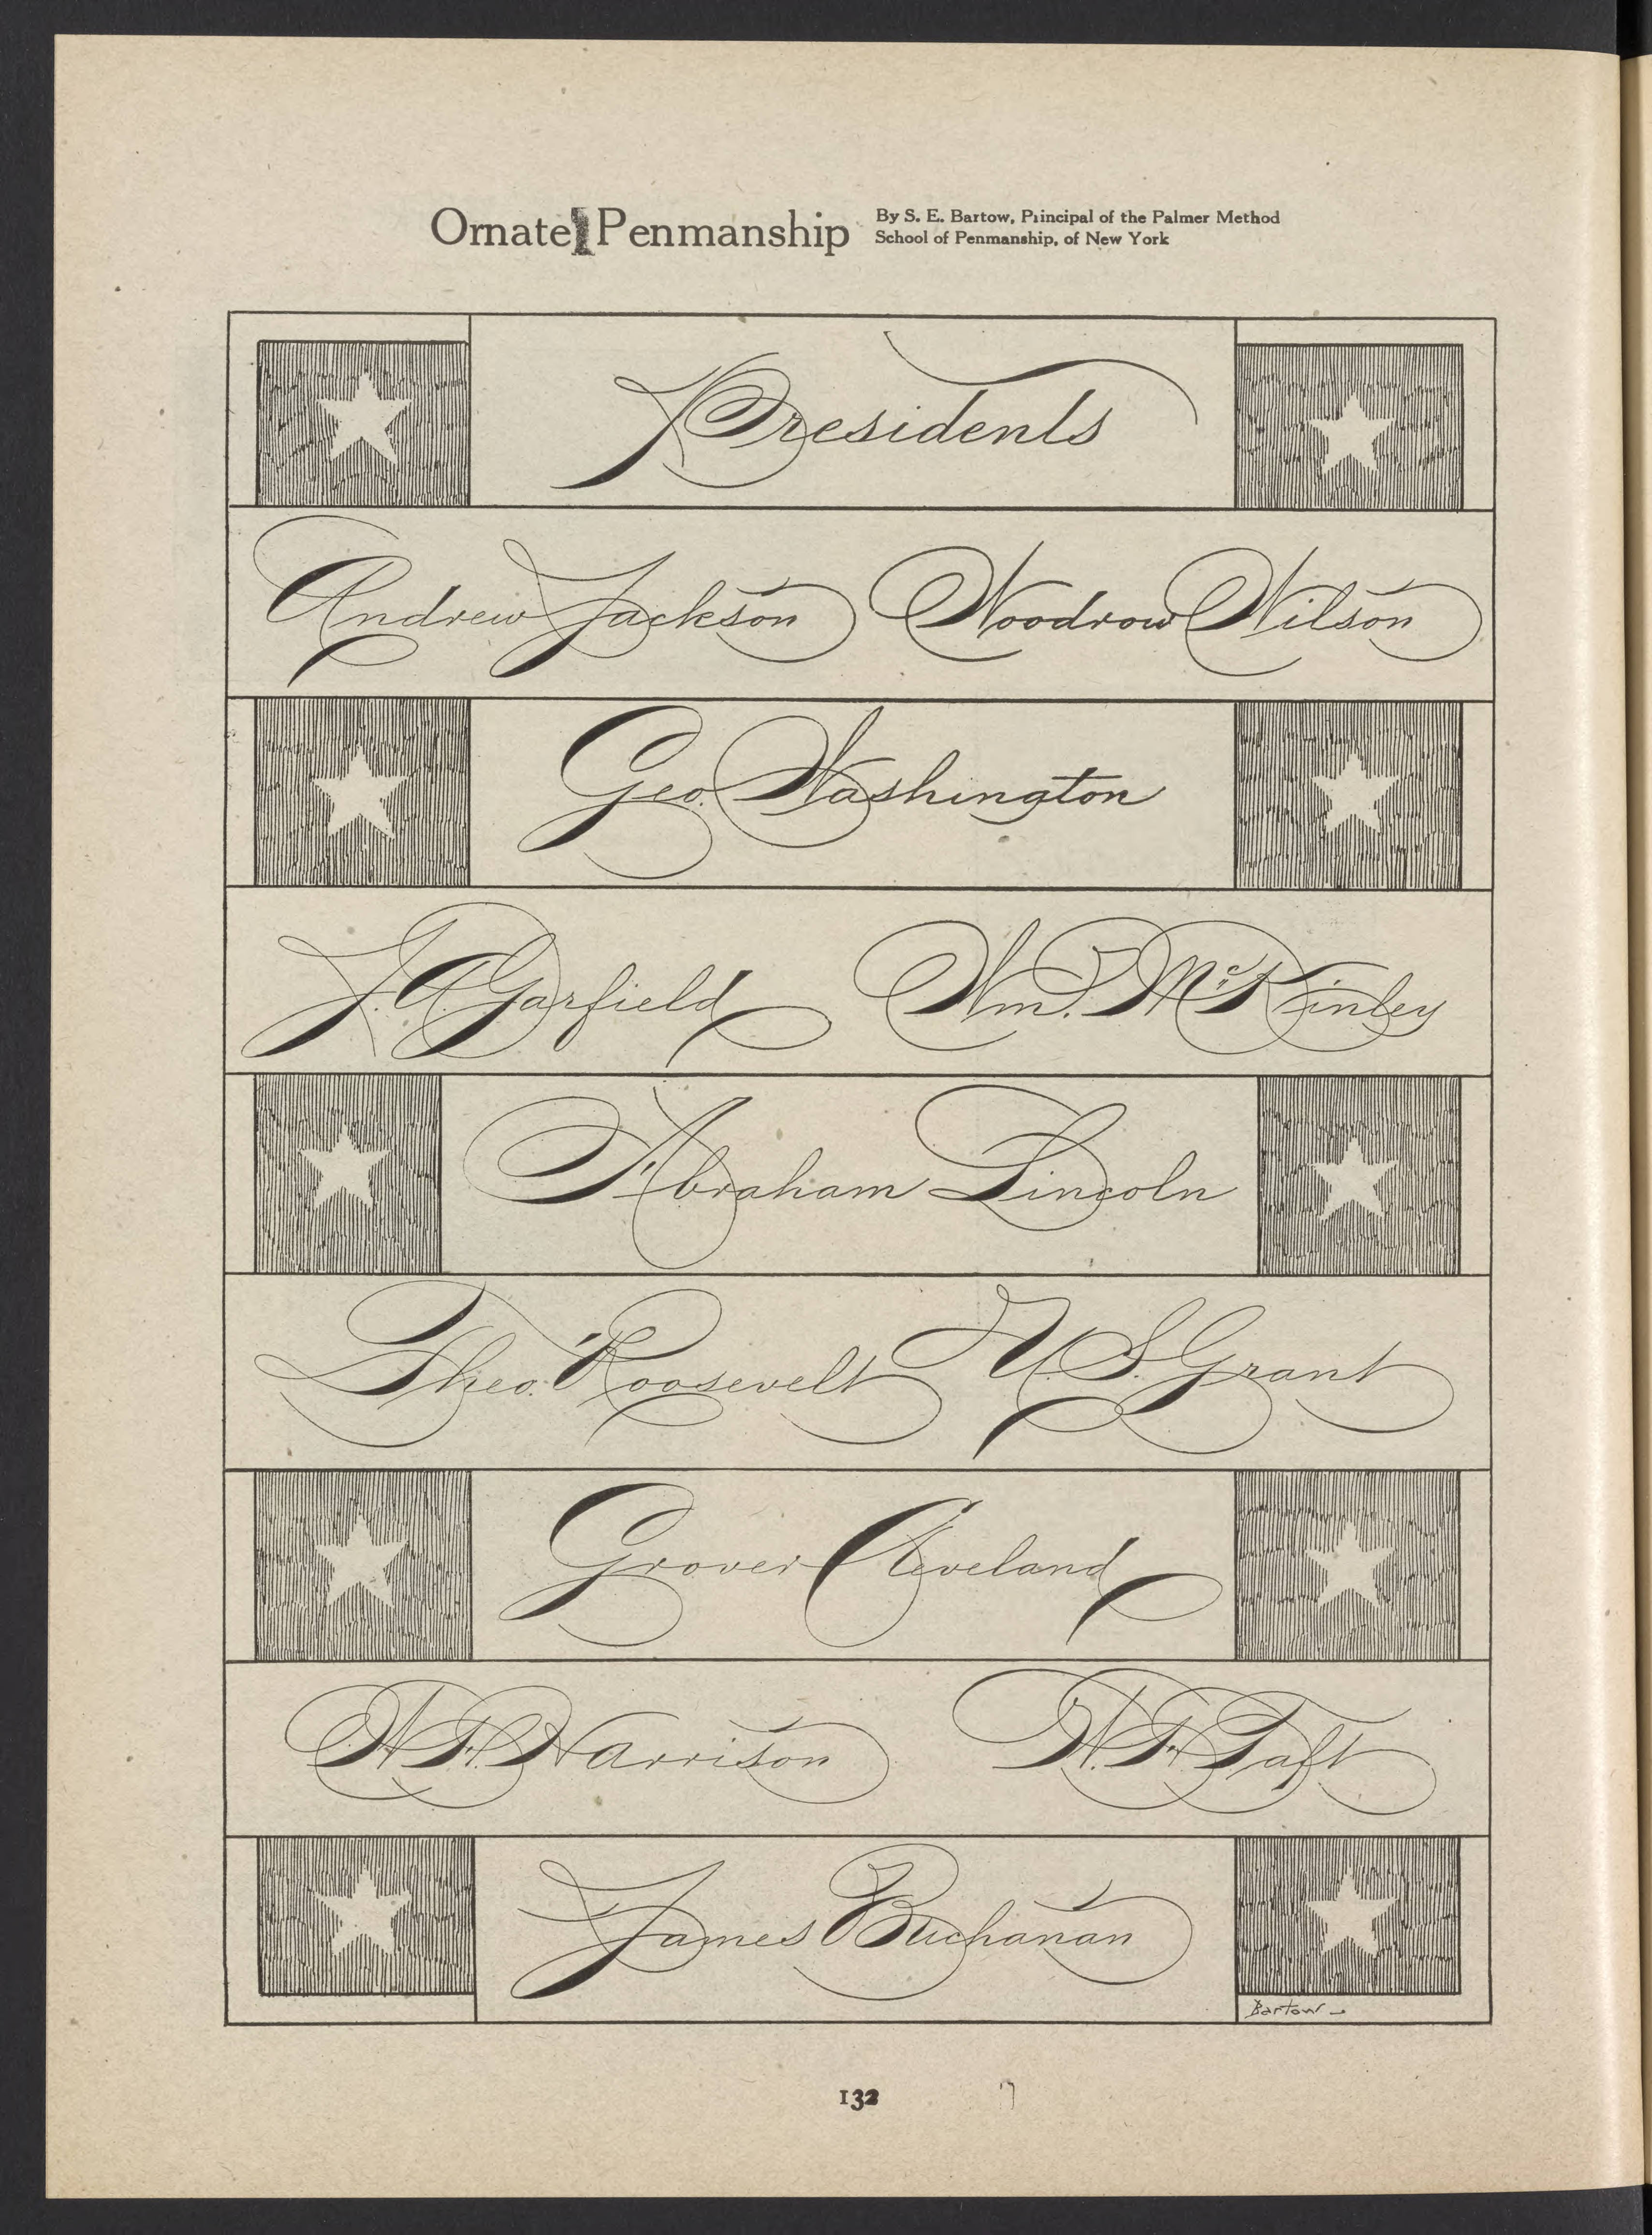 Ornate Penmanship
By S. E. Bartow, Principal of the Palmer Method
School of Penmanship, of New York
Presidents
Andrew Jackson Woodrow Wilson
Geo. Washington
J. A. Garfield Wm. McKinley
Abraham Lincoln
Theo. Roosevelt U. S. Grant
Grover Cleveland
W. H. Harrison W. H. Taft
James Buchanan
Bartow
132